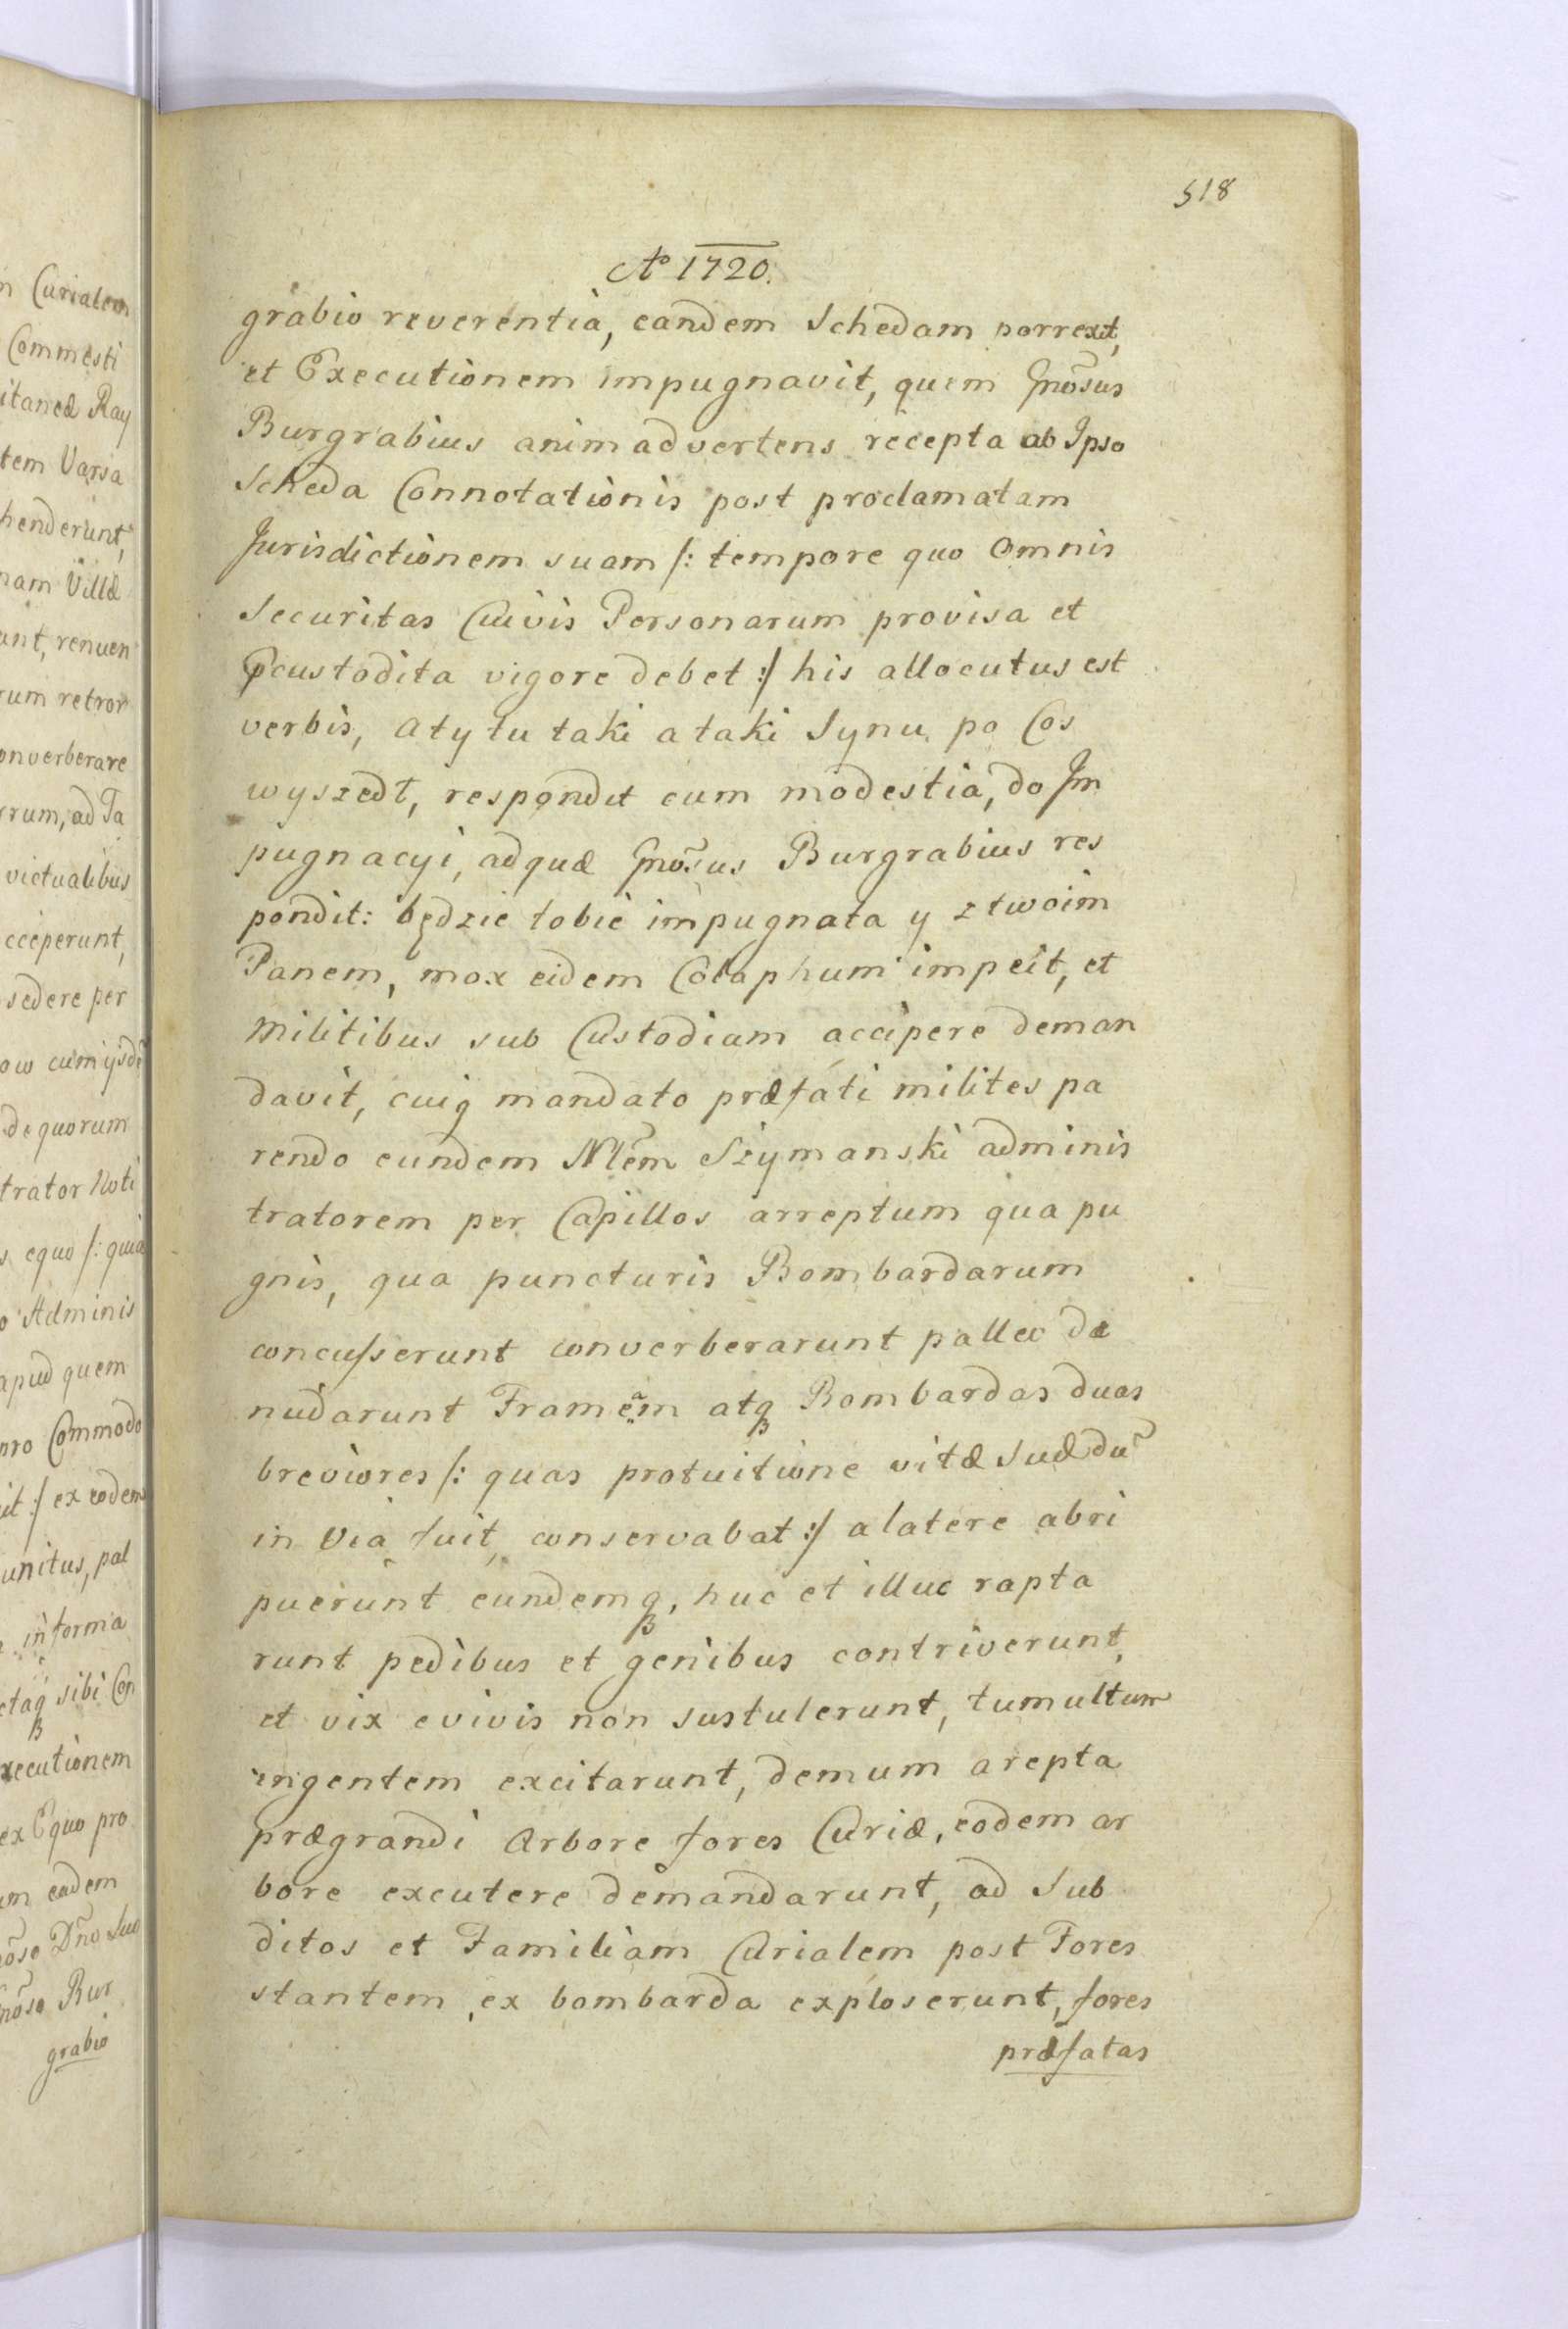 518
Aº 1720.
grabio reverentia, eandem Schedam porrexit,
et Executionem impugnavit, quem Gnõsus
Burgrabius animadvertens recepta ab Ipso
Scheda Connotationis post proclamatam
Jurisdictionem suam /: tempore quo Omnis
Securitas Cuivis Personarum provisa et
custodita vigore debet :/ his allocutus est
verbis, a ty tu taki a taki Synu po Cos
wyszedł, respondit cum modestia, do Im
pugnacyi, ad quæ Gnõsus Burgrabius res
pondit: będzie tobie impugnata y z twoim
Panem, mox eidem Colaphum impeit, et
Militibus sub Custodiam accipere deman
davit, cuiq mandato præfati milites pa
rendo eundem Nlẽm Szymanski adminis
tratorem per Capillos arreptum qua pu
gnis, qua puncturis Bombardarum
concusserunt converberarunt palleo de
nudarunt Framẽm atq Bombardas duas
breviores /: quas protuitione vitæ suæ dũ
in Via fuit, conservabat :/ a latere abri
puerunt eundemq, huc et illuc rapta
runt pedibus et genibus contriverunt,
et vix evivis non sustulerunt, tumultum
ingentem excitarunt, demum arepta
prægrandi Arbore fores Curiæ, eodem ar
bore excutere demandarunt, ad Sub
ditos et Familiam Curialem post Fores
stantem, ex bombarda exploserunt, fores
præfatas
n Curialem
Commesti
itaneæ Ray
tem Varsa
henderunt,
nam Villæ
ant, renuen
rum retror
onverberare
rum, ad Ta
victualibus
cceperunt,
sedere per
ow cum ijsdẽ
de quorum
trator Noti
s equo /: quia
o Adminis
apud quem
pro Commodo
it :/ ex eodem
unitus, pal
informa
ctaq sibi Con
xecutionem
ex Equo pro
um eadem
nõso Dño Suo
nõso Bur
grabio